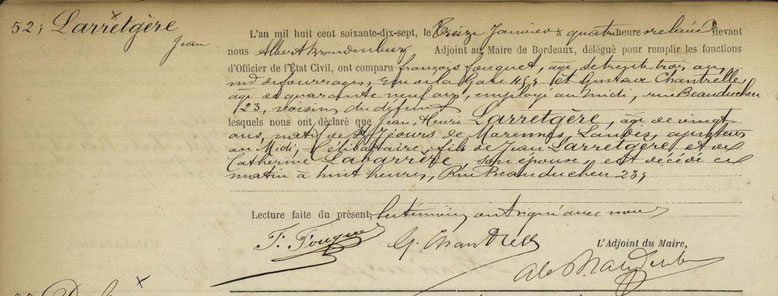 52, Larrètgère
Jean
L'an mil huit cent soixante-dix-sept, le treize Janvier à quatre heures relevée devant
nous Albert Brandenburg Adjoint au Maire de Bordeaux, délégué pour remplir les fonctions
d'Officier de l'État Civil, ont comparu françois fouquet, agé de trente trois ans
md de fourrages, rue de la Gare et Gustave Chantrelle,
âgé de quarante neuf ans, employé au midi, rue Beauduchen
23, voisins du défunt
lesquels nous ont déclaré que Jean, Henri Larretgère, âgé de vingt
ans, natif de St Geours de Maremnes, Landes, au
Midi, Célibataire, fils de Jean Larretgère, et de
Catherine Labarrère, son épouse, est décédé ce
matin à huit heures, Rue Beauduchen 23,
Lecture faite du présent, les témoins ont signé avec nous
F. Fouquet
G. Chantrelle
L'Adjoint du Maire,
Alb Brandenburg